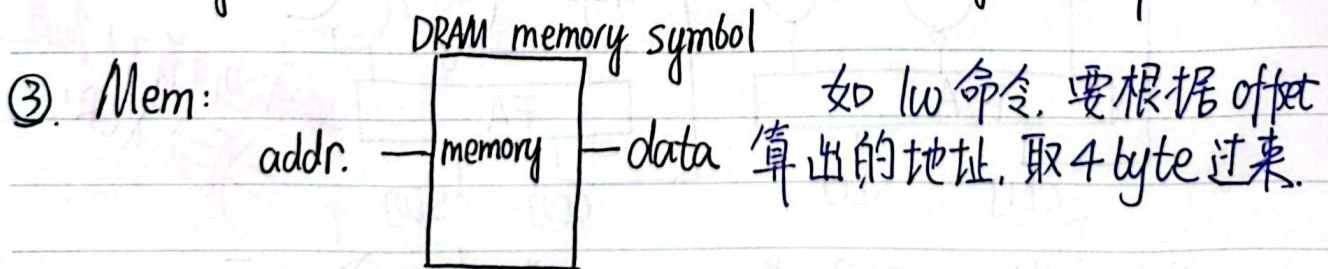 DRAM memory symbol
③. Mem:
addr. memory data
如 lw 命令. 要根据 offset
算出的地址, 取 4 byte 过来.